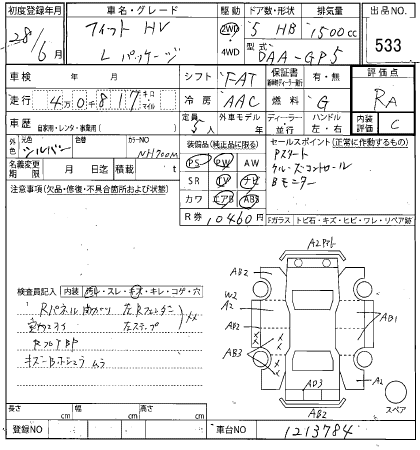 初度登録年月 車名・グレード 駆動 ドア数・形状 排気量 出品NO.
28/6月 フィット HV 2WD 5 HB 1500cc 533
Lパッケージ 4WD 型式 DAA-GP5
車検 年 月 シフト FAT 保証書 有・無 評価点
走行 4万0千817 キロ マイル 冷房 AAC 燃料 G RA
車歴 自家用・レンタ・事業用( ) 定員 5人 外車モデル 年 ディーラー・並行 ハンドル 左・右 内装評価 C
外色 元色 シルバー 色替 カラーNO NH700M
装備品 (純正品に限る) セールスポイント (正常に作動するもの)
名義変更期限 月 日迄 積載 t
PS PW AW Pスタート
SR TV ナビ クルーズコントロール
カワ エアB ABS Bモニター
注意事項 (欠品・修復・不具合箇所および状態)
R券 10460円 Fガラス トビ石・キズ・ヒビ・ワレ・リペア跡
検査員記入 内装 汚レ・スレ・キズ・キレ・コゲ・穴
Rパネル 左Rフェンダー
左ステップ
メメ
ムラ
AB2
W2
A2
AB2
AB3
AB1
A2
AD3
AB2
スペア
長さ cm 幅 cm 高さ cm
登録NO 車台NO 1213784